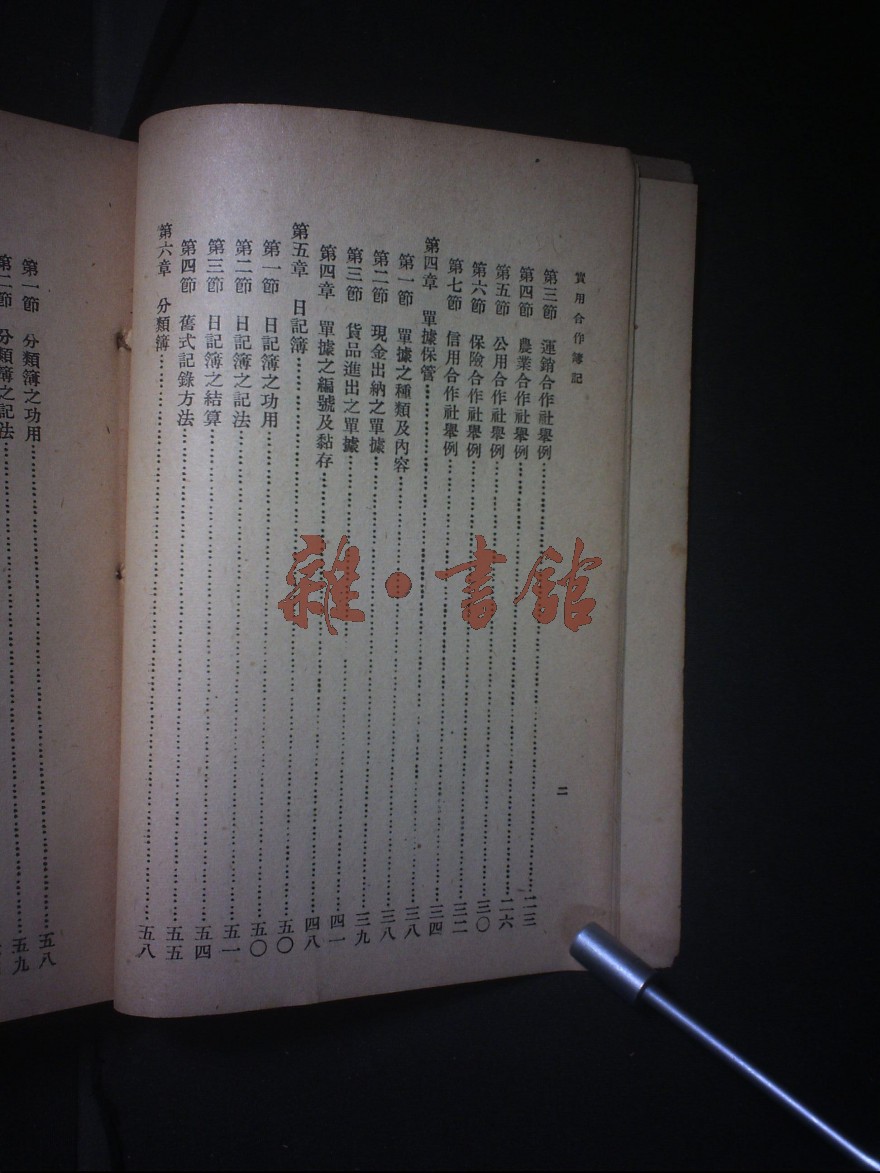 實用合作簿記
二
第三節 運銷合作社舉例……二三
第四節 農業合作社舉例……二六
第五節 公用合作社舉例……三〇
第六節 保險合作社舉例……三二
第七節 信用合作社舉例……三四
第四章 單據保管……三八
第一節 單據之種類及內容……三八
第二節 現金出納之單據……三九
第三節 貨品進出之單據……四一
第四章 單據之編號及黏存……四八
第五章 日記簿……五〇
第一節 日記簿之功用……五〇
第二節 日記簿之記法……五一
第三節 日記簿之結算……五四
第四節 舊式記錄方法……五五
第六章 分類簿……五八
第一節 分類簿之功用……五八
第二節 分類簿之記法……五九
雜·書館